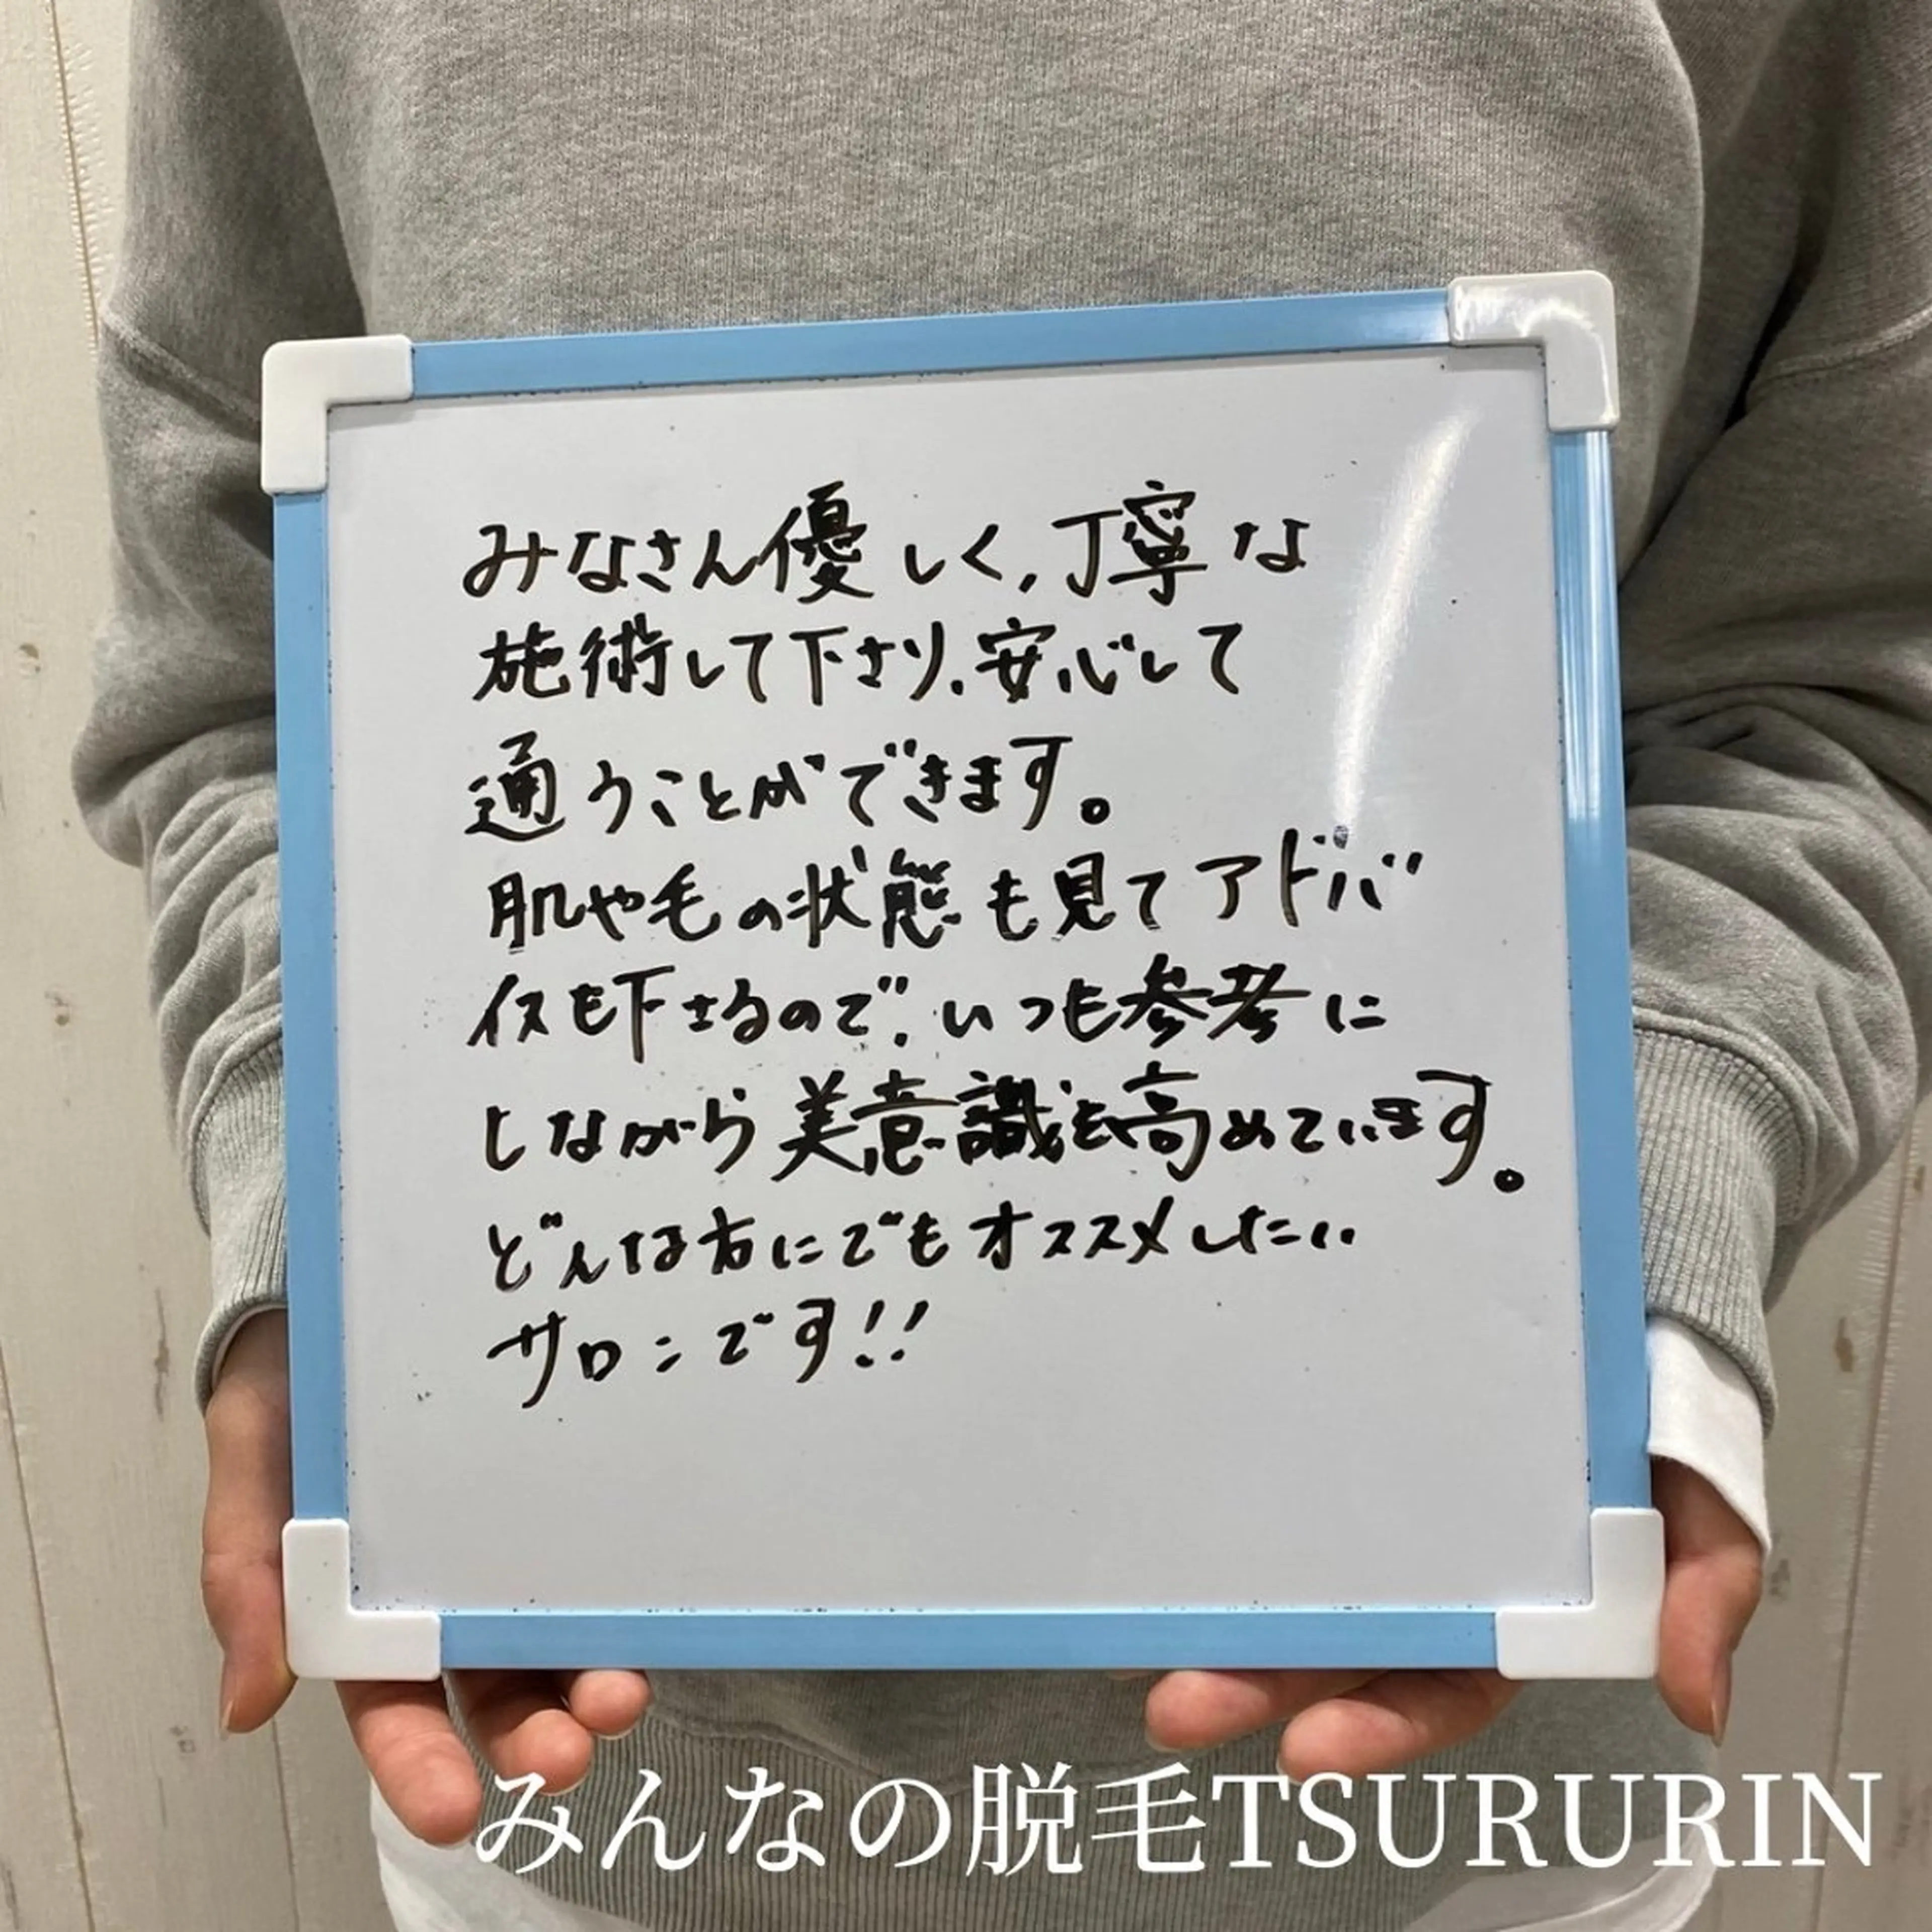 みなさん優しく,丁寧な
施術して下さり、安心して
通うことができます。
肌や毛の状態も見てアドバ
イスも下さるので、いつも参考に
しながら美意識を高めています。
どんな方にでもオススメしたい
サロンです!!
みんなの脱毛TSURURIN